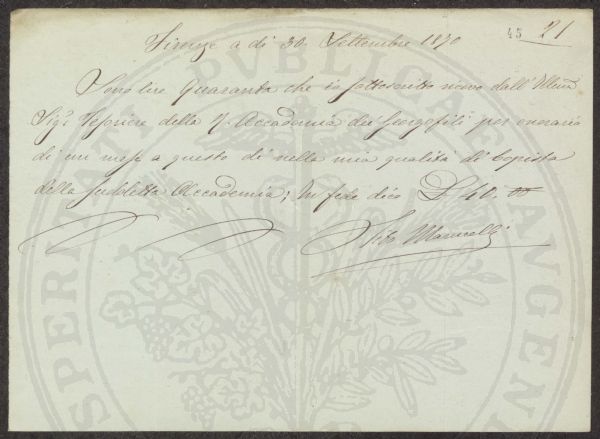 45 21
Firenze a dì 30. Settembre 1870
Sono lire Quaranta che io sottoscritto ricevo dall'Illmo
Sigr Tesoriere della R. Accademia dei Georgofili per onorario
di un mese a questo dì nella mia qualità di Copista
della suddetta Accademia; In fede dico L 40. 00
Vito Manucelli
SPERITATI PVBLICAE AVGENDAE